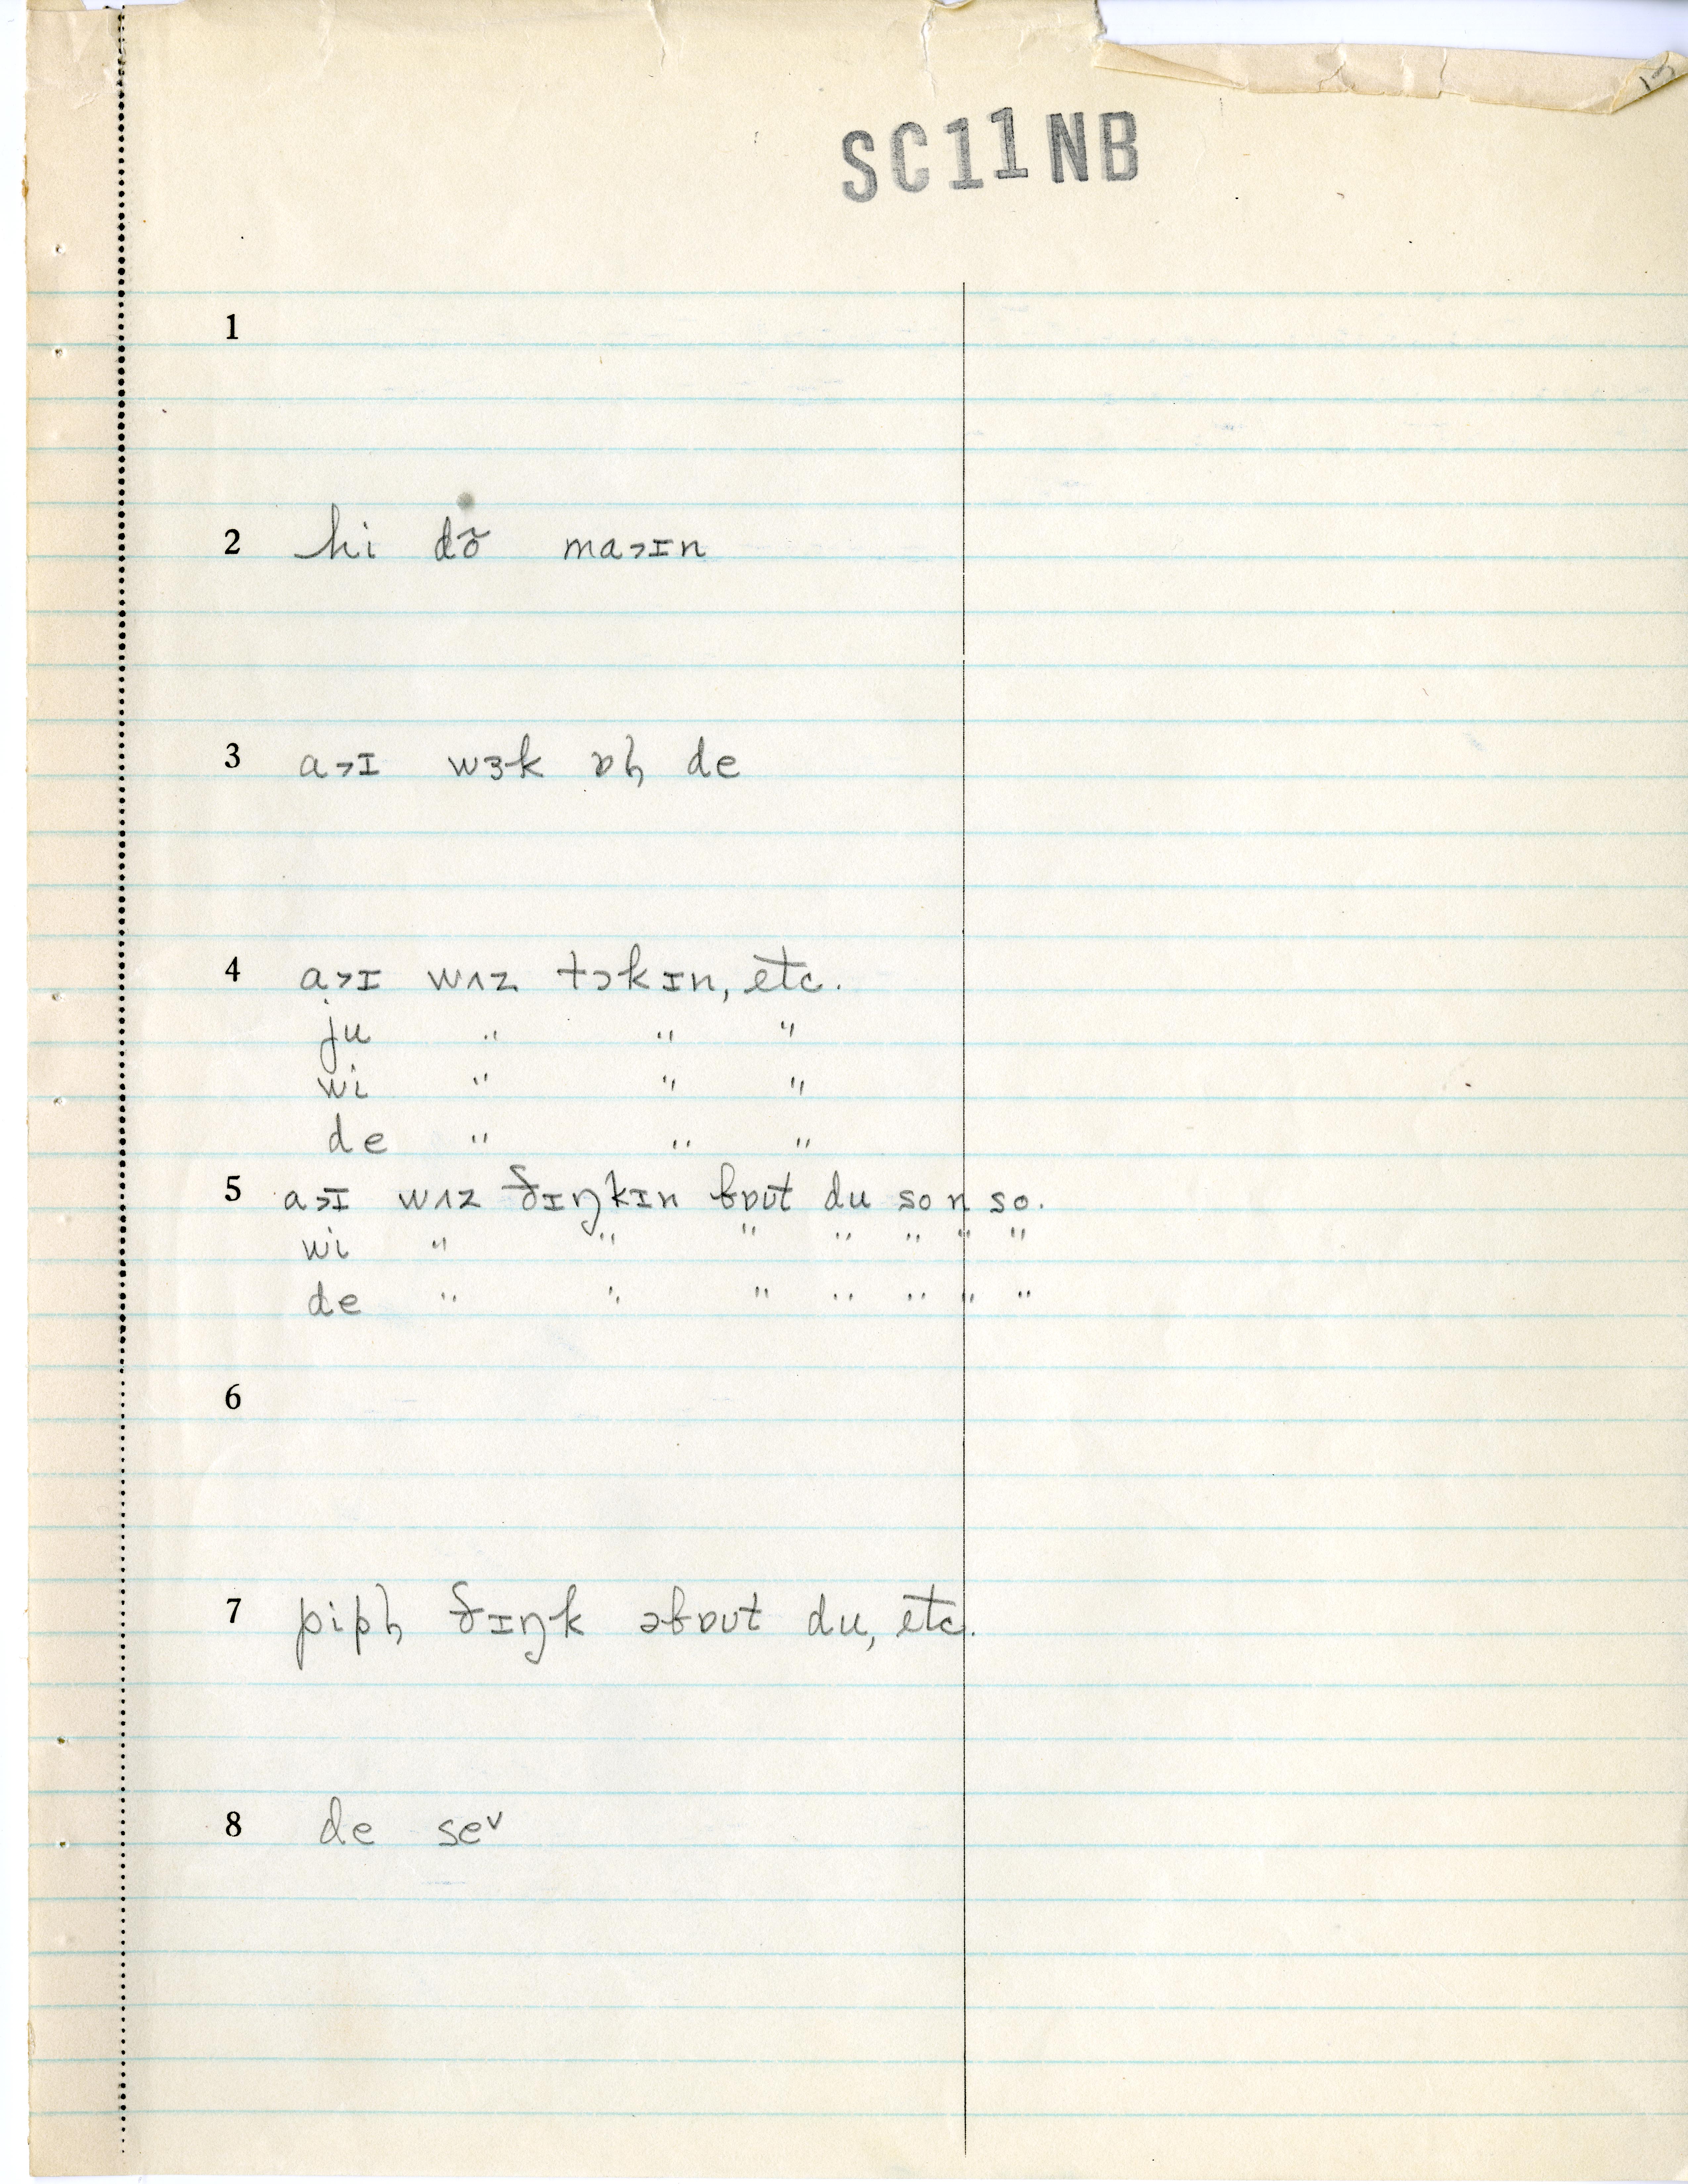 13
SC11NB
1
2 hi dõ ma˃ɪn
3 a˃ɪ wɜk ɒɦ de
4 a˃ɪ wʌz tɔkɪn, etc.
ju " " "
wi " " "
de " " "
5 a˃ɪ wʌz ɪŋkɪn ɓɒʊt du so n so.
wi " " " " " " "
de " " " " " " "
6
7 ɪŋk əɓɒʊt du, etc.
8 de se˅